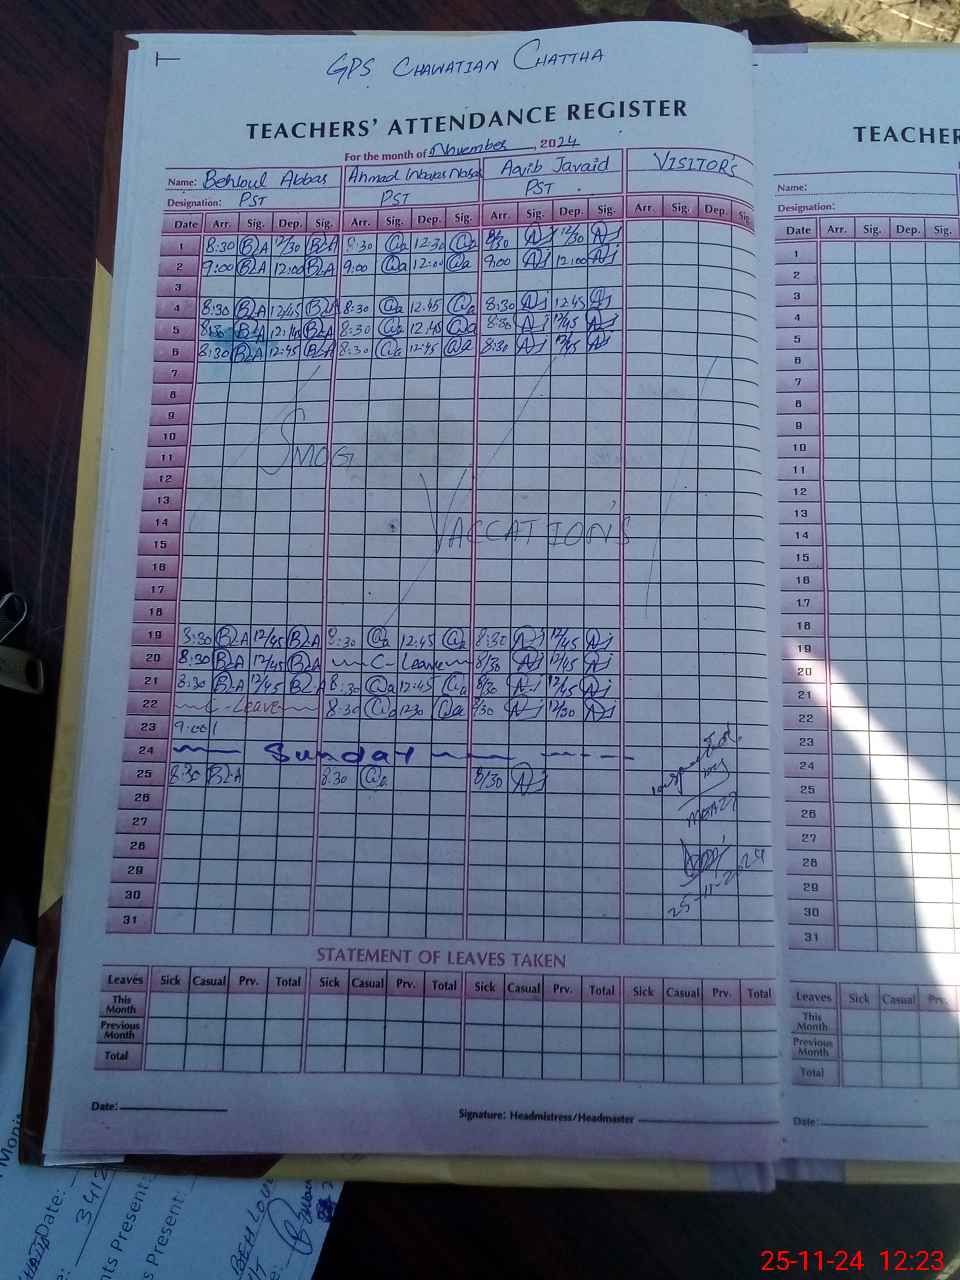 GPS CHAWATIAN CHATTHA
TEACHERS' ATTENDANCE REGISTER
For the month of November, 2024
Name: Behloul Abbas Ahmad Aqib Javaid VISITOR's
Designation: PST PST PST
Date Arr. Sig. Dep. Sig. Arr. Sig. Dep. Sig. Arr. Sig. Dep. Sig. Arr. Sig. Dep. Sig.
1 8:30 BLA 12/30 BLA 8:30 @a 12:30 @a 8/30 AJ 12/30 AJ
2 9:00 BLA 12:00 BLA 9:00 @a 12:00 @a 9:00 AJ 12:00 AJ
3
4 8:30 BLA 12/45 BLA 8:30 @a 12:45 @a 8:30 AJ 12:45 AJ
5 8:30 BLA 12:45 BLA 8:30 @a 12:45 @a 8:30 AJ 12/45 AJ
6 8:30 BLA 12:45 BLA 8:30 @a 12:45 @a 8:30 AJ 12/45 AJ
7
8
9
10
11 SMOG
12
13
14 VACCATION'S
15
16
17
18
19 8:30 BLA 12/45 BLA 8:30 @a 12:45 @a 8:30 AJ 12/45 AJ
20 8:30 BLA 12/45 BLA C-Leave 8/30 AJ 12/45 AJ
21 8:30 BLA 12/45 BLA 8:30 @a 12:45 @a 8/30 AJ 12/45 AJ
22 C-Leave 8:30 @a 1230 @a 8/30 AJ 12/30 AJ
23 9:00
24 Sunday
25 8:30 BLA 8:30 @a 8/30 AJ
26
27
28
29
30
31
25-11-2024
STATEMENT OF LEAVES TAKEN
Leaves Sick Casual Prv. Total Sick Casual Prv. Total Sick Casual Prv. Total Sick Casual Prv. Total
This Month
Previous Month
Total
Date: Signature: Headmistress/Headmaster
TEACHER
Name:
Designation:
Date Arr. Sig. Dep. Sig.
1
2
3
4
5
6
7
8
9
10
11
12
13
14
15
16
17
18
19
20
21
22
23
24
25
26
27
28
29
30
31
Leaves Sick Casual Prv.
This Month
Previous Month
Total
Date:
Date:
3412
Present:
s Present:
BEHLOUL
25-11-24 12:23